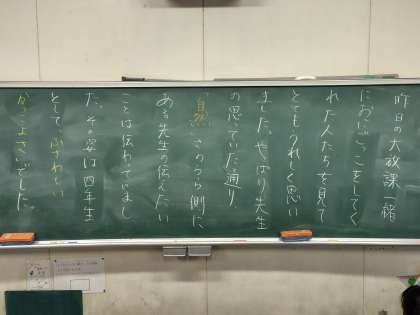 昨日の大放課一緒
におにごっこをしてく
れた人たちを見て
とてもうれしく思い
ました。やはり先生
の思っていた通り
「自然」さのうら側に
ある先生の伝えたい
ことは伝わっていまし
た。その姿は四年生
として、ふさわしい
かっこよさでした。